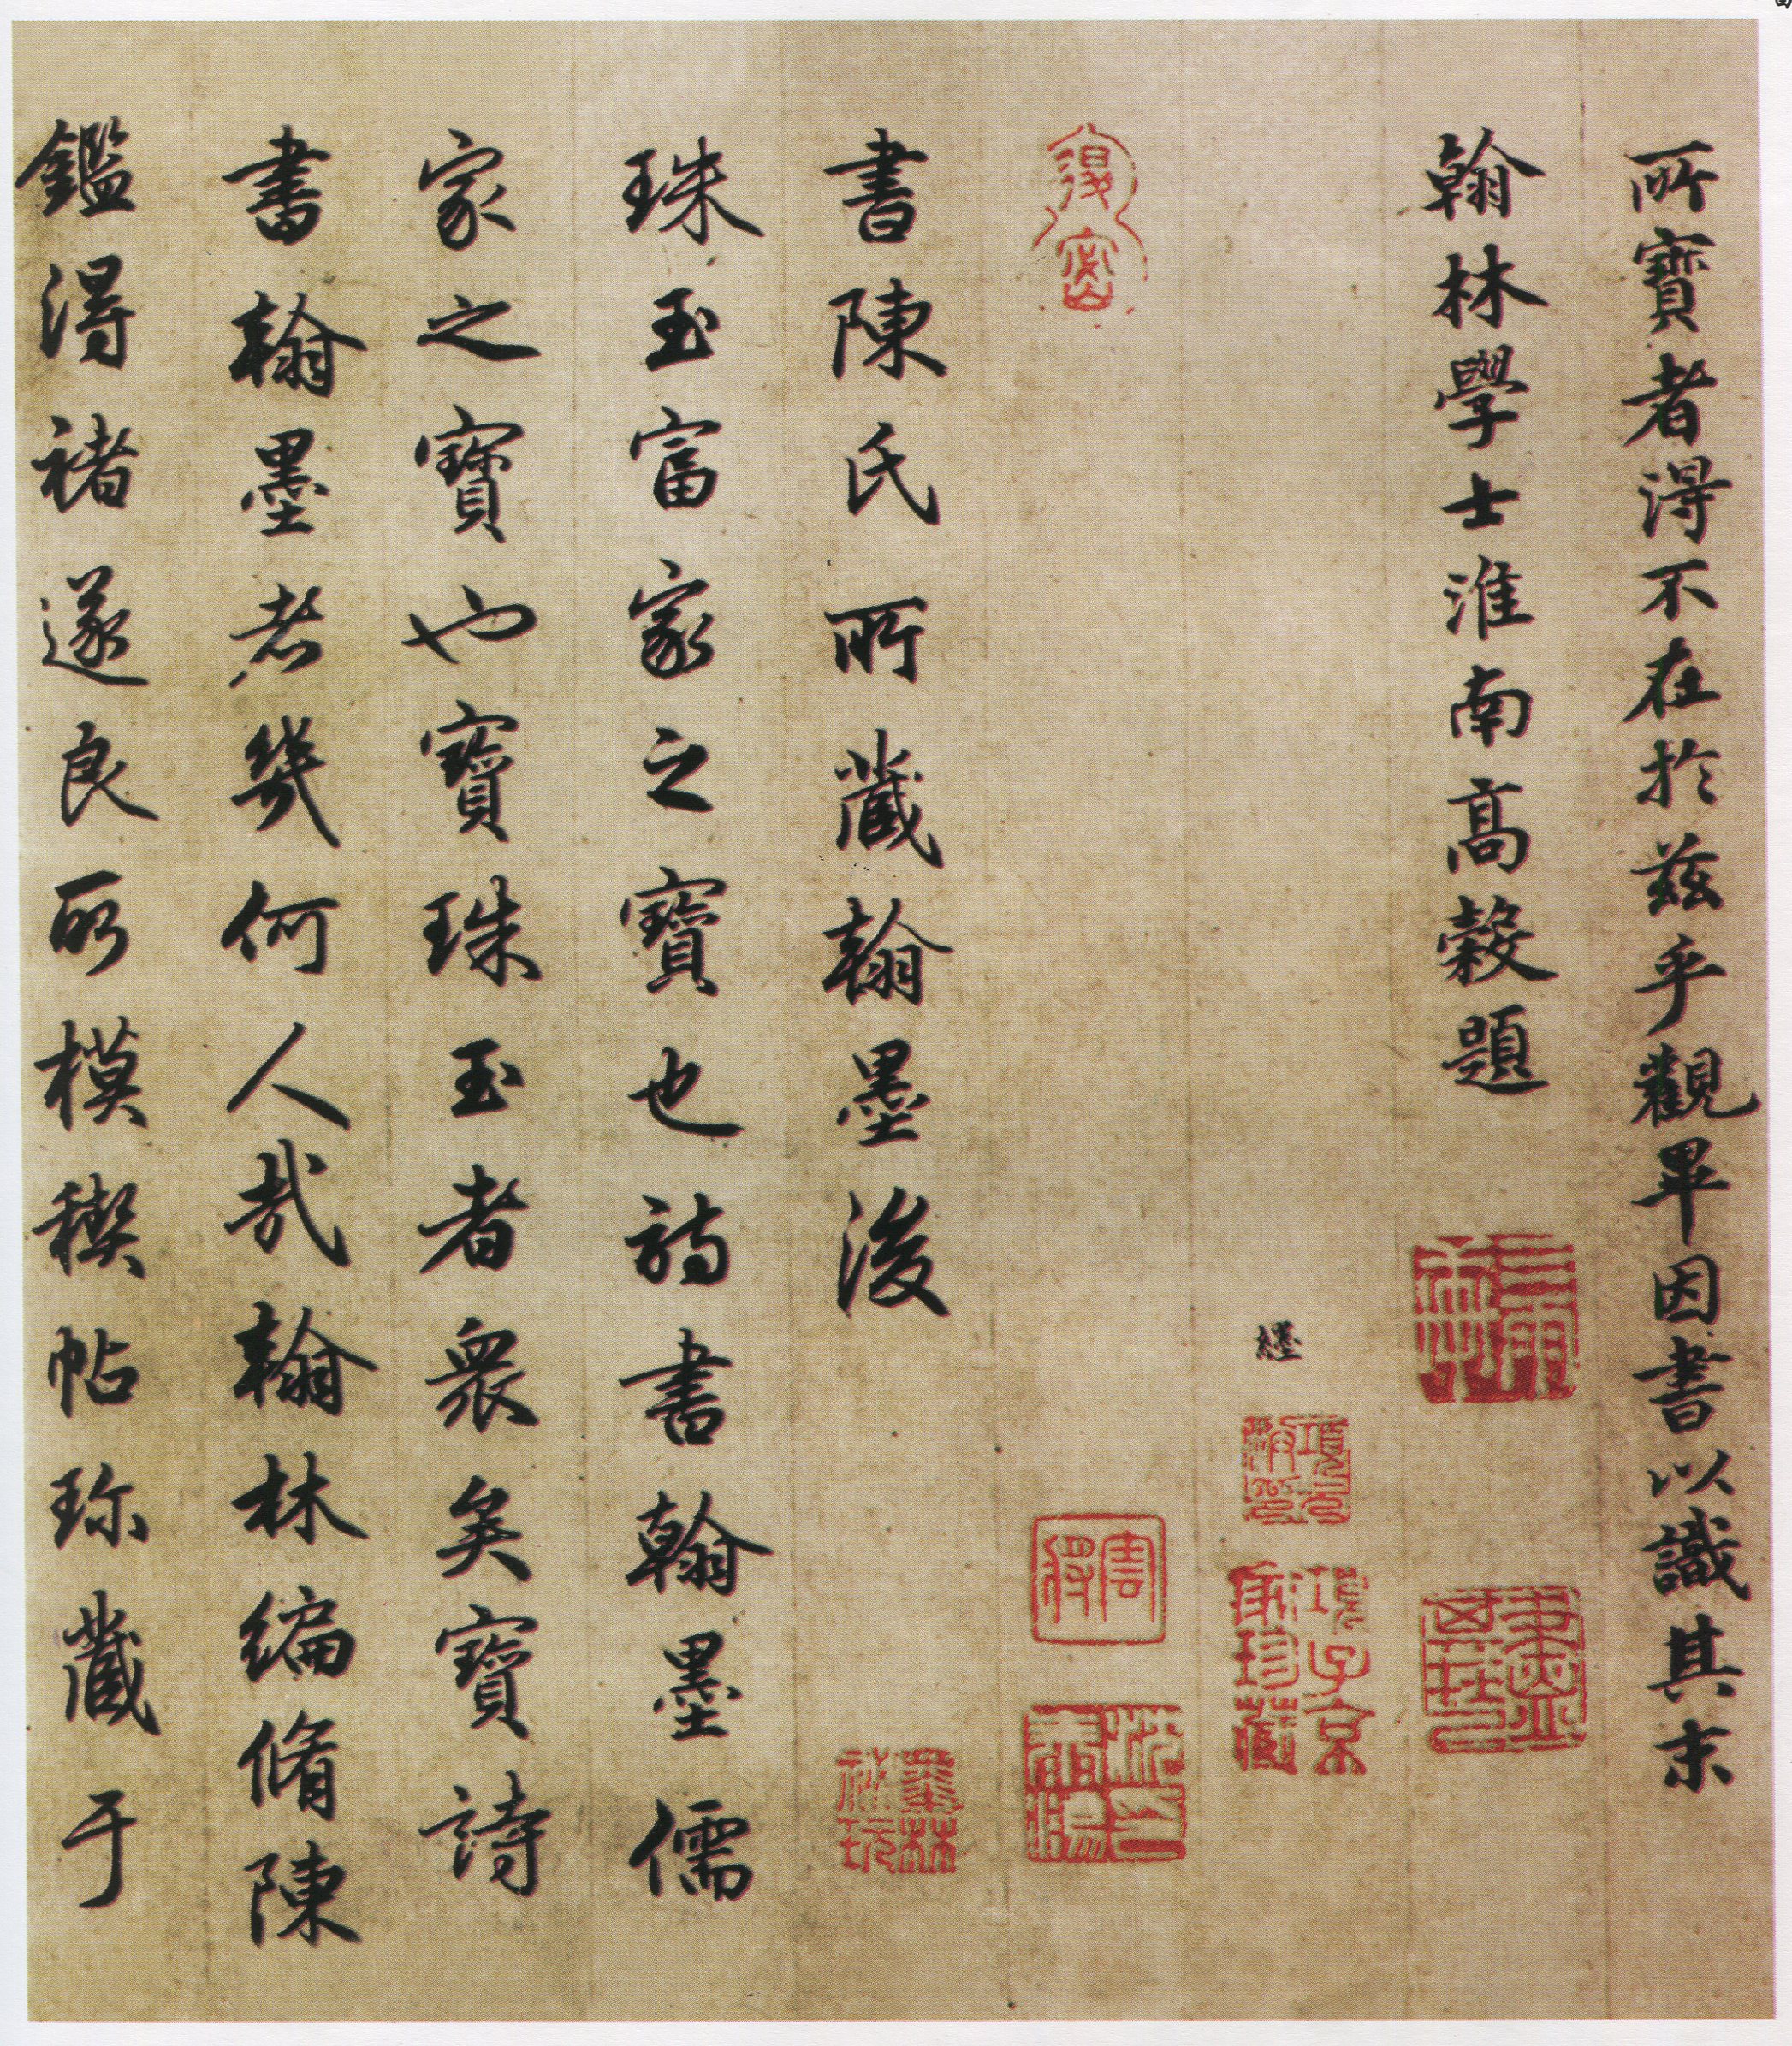 所寶者得不在於茲乎觀畢因書以識其末
翰林學士淮南高穀題
繹
書陳氏所藏翰墨後
珠玉富家之寶也詩書翰墨儒
家之寶也寶珠玉者衆矣寶詩
書翰墨者幾何人哉翰林編脩陳
鑑得褚遂良所模禊帖珎藏于
項子京家珍藏
墨林祕玩